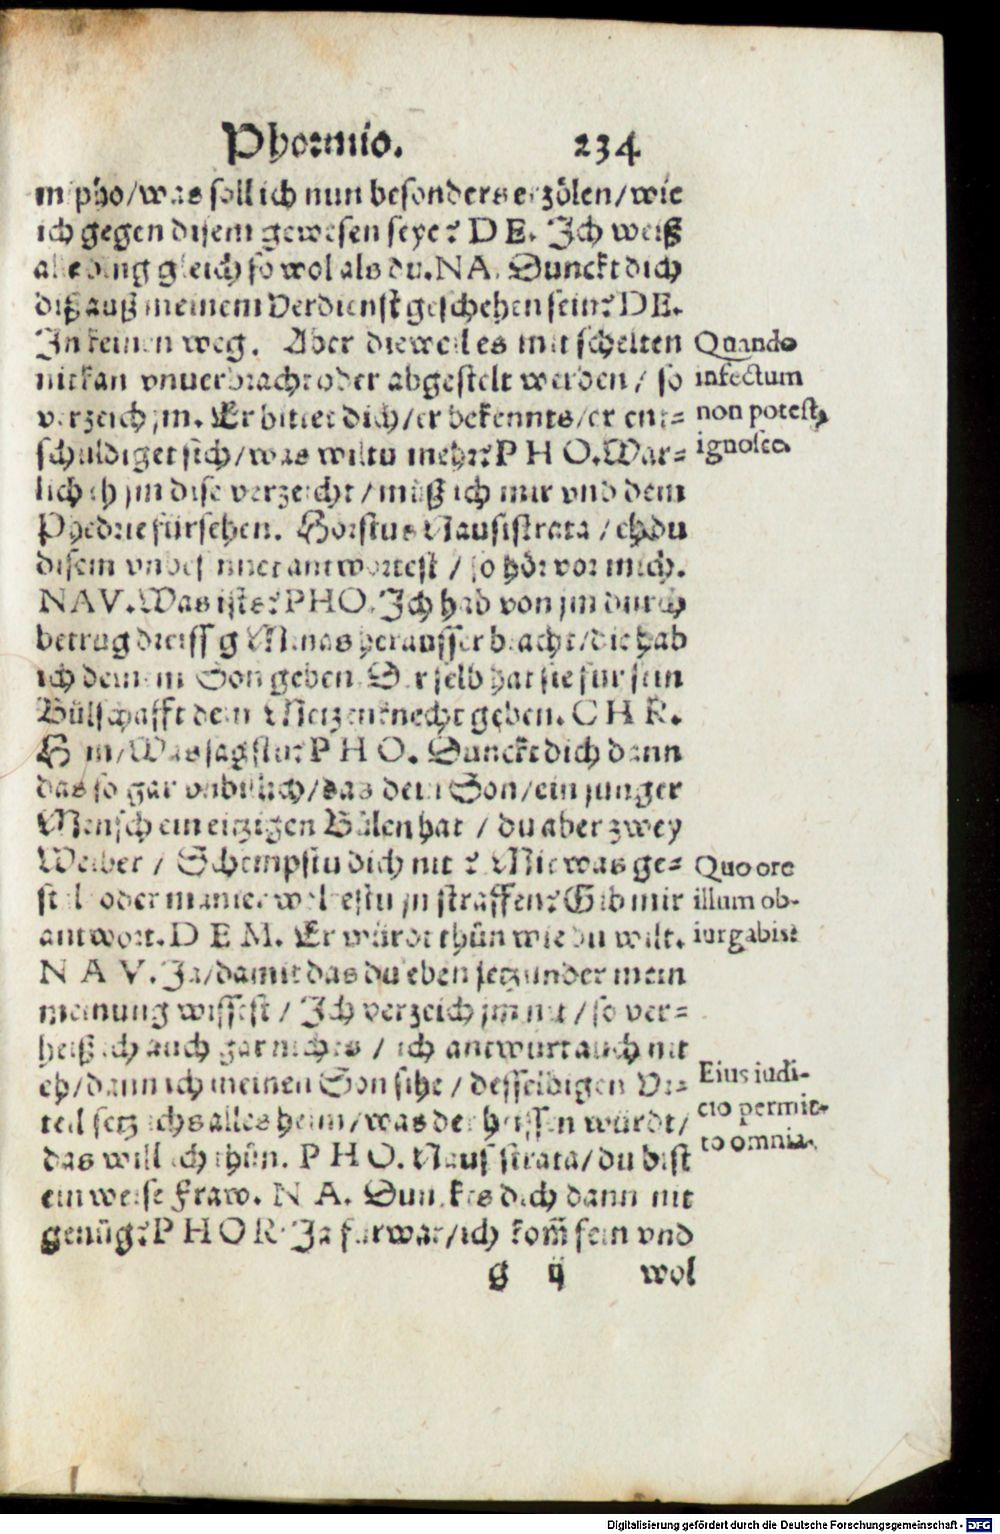 Phormio. 234
mipho/was soll ich nun besonders erzölen/wie
ich gegen disem gewesen seye? DE. Ich weiß
alle ding gleich so wol als du. NA. Dunckt dich
diß auß meinem Verdienst geschehen sein? DE.
In keinen weg. Aber dieweil es mit schelten
nit kan vnuerbracht oder abgestelt werden / so
verzeich jm. Er bittet dich/er bekennts/er ent-
schuldiget sich/was wiltu mehr? PHO. War-
lich eh jm dise verzeicht / müß ich mir vnd dem
Phedrie fürsehen. Hörstus Nausistrata / eh du
disem vnbesinnet antwortest / so hör vor mich.
NAV. Was ists? PHO. Ich hab von jm durch
betrug dreissig Minas herausser bracht/die hab
ich deinem Son geben. Derselb hat sie für sein
Bülschafft dem Metzenknecht geben. CHR.
Hem/Was sagstu? PHO. Dunckt dich dann
das so gar vnbillich/das dein Son/ein junger
Mensch ein eitzigen Bülen hat / du aber zwey
Weiber / Schempstu dich nit? Mit was ge-
stalt oder manier woltestu jn straffen? Gib mir
antwort. DEM. Er würdt thün wie du wilt.
NAV. Ja/damit das du eben jetzunder mein
meinung wissest / Ich verzeich jm nit / so ver-
heiß ich auch gar nichts / ich antwurt auch nit
eh/dann ich meinen Son sihe / desselbigen Vr-
teil setz ichs alles heim/was der heissen würdt/
das will ich thün. PHO. Nausistrata/du bist
ein weise Fraw. NA. Dunckts dich dann nit
genüg? PHOR. Ja fürwar/ich kom̃ fein vnd
g ij wol
Quando
infectum
non potest,
ignosce.
Quo ore
illum ob-
iurgabis?
Eius iudi-
cio permit-
to omnia.
Digitalisierung gefördert durch die Deutsche Forschungsgemeinschaft - DFG